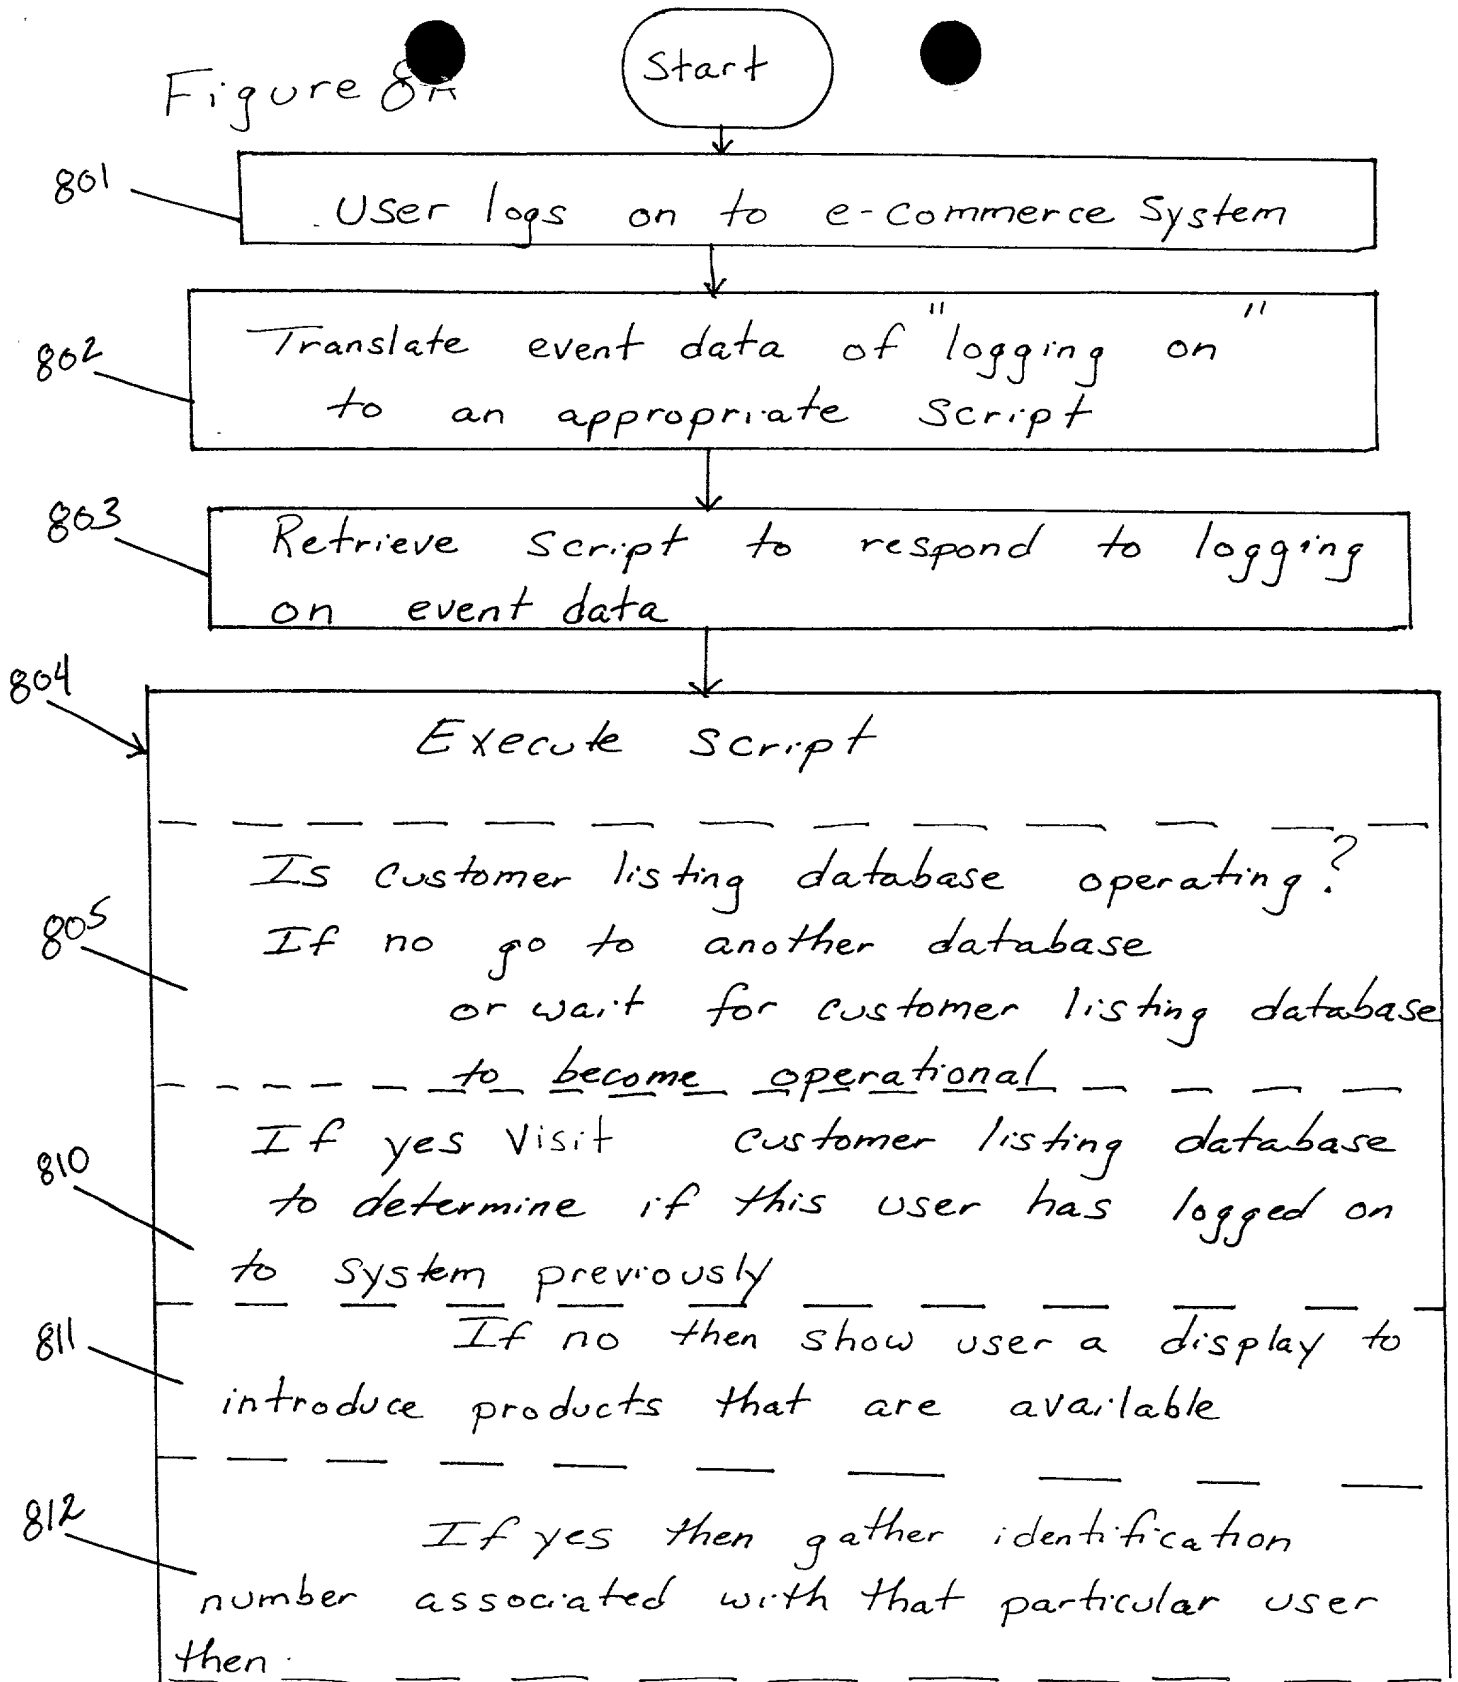 Start
Figure 8A
801
User logs on to e-commerce System
802
Translate event data of "logging on"
to an appropriate script
803
Retrieve script to respond to logging
on event data
804
Execute script
Is customer listing database operating?
805
If no go to another database
or wait for customer listing database
to become operational
If yes Visit customer listing database
810
to determine if this user has logged on
to system previously
811
If no then show user a display to
introduce products that are available
812
If yes then gather identification
number associated with that particular user
then